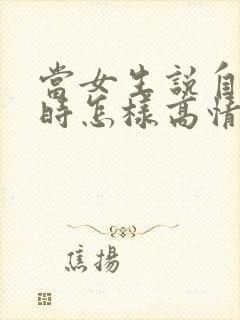 當女生說自
時怎樣高情
焦揚